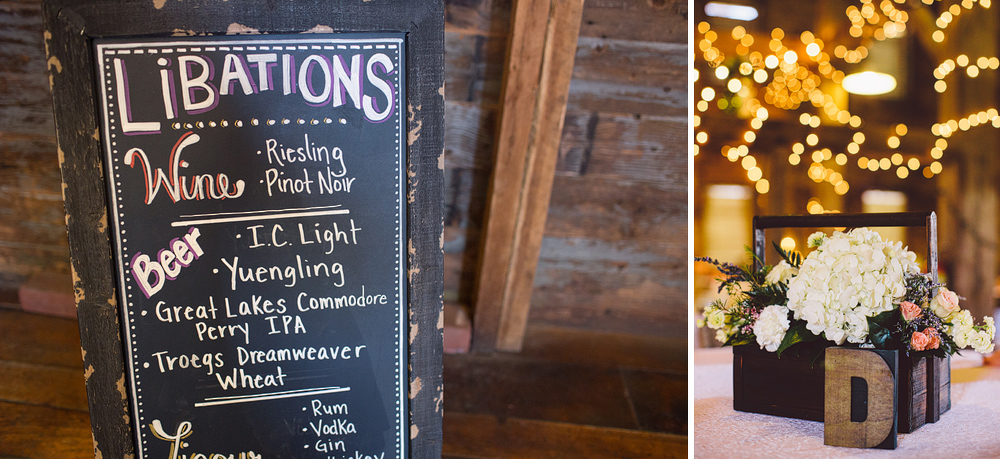 LiBATIONS
Wine
• Riesling
• Pinot Noir
Beer
• I.C. Light
• Yuengling
• Great Lakes Commodore
Perry IPA
• Troegs Dreamweaver
Wheat
Liquor
• Rum
• Vodka
• Gin
Whiskey
D